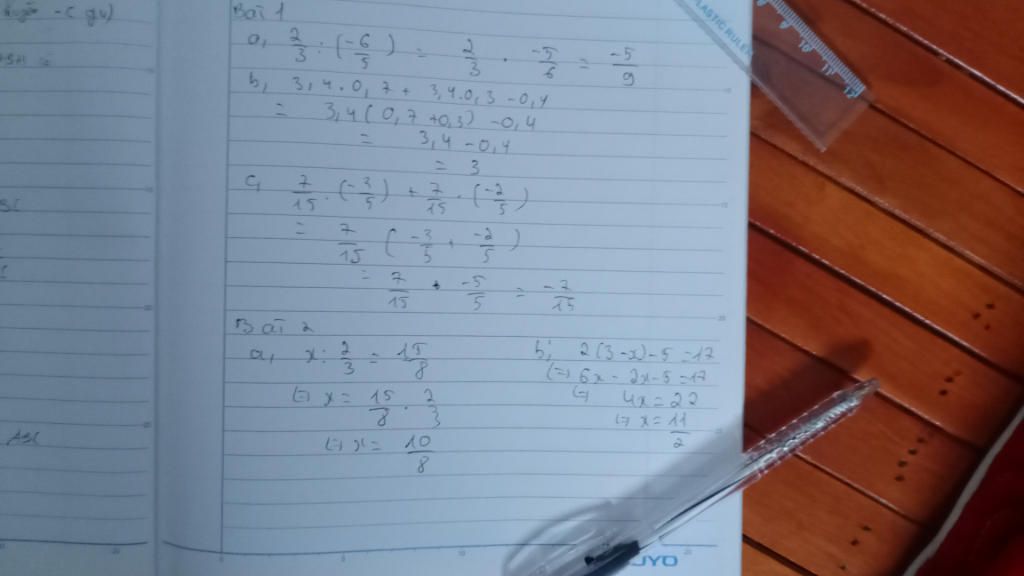 Bài 1
a, 2/3 : (-6/5) = 2/3 . -5/6 = -5/9
b, 3,4.0,7 + 3,4.0,3 - 0,4
= 3,4(0,7+0,3) - 0,4
= 3,4 - 0,4
= 3
c, 7/15 . (-3/5) + 7/15 . (-2/5)
= 7/15 (-3/5 + -2/5)
= 7/15 . -5/5 = -7/15
Bài 2
a, x : 2/3 = 15/8
(=) x = 15/8 . 2/3
(=) x = 10/8
b, 2(3-x)-5=17
(=) 6x - 2x-5=17
(=) 4x=22
(=) x = 11/2
ABC
PLASTIC RULER